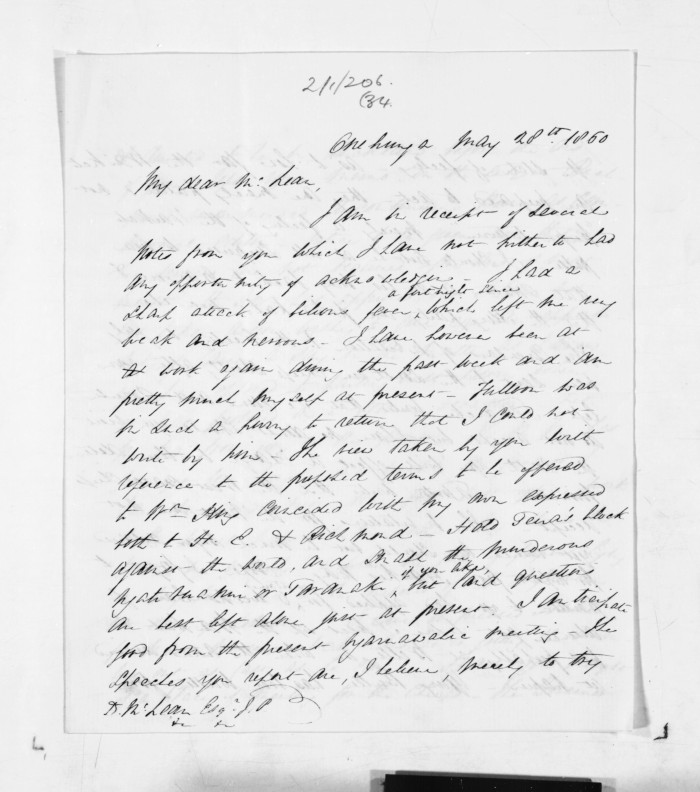 2/1/206.
(34.
Onehunga May 28th 1860
My dear McLean,
I am in receipt of several
notes from you which I have not hitherto had
any opportunity of acknowledging - I had a
sharp attack of bilious fever a fortnight since, which left me very
weak and nervous - I have however been at
work again during the past week and am
pretty much myself at present - Fulloon was
in such a hurry to return that I could not
write by him - The view taken by you with
reference to the proposed terms to be offered
to Wm King coincided with my own expressed
both to H. E. & Richmond - Hold Teira's block
against the world, and smash the murderous
Ngatiruanui or Taranaki, if you like, but land questions
are best left alone just at present - I anticipate
good from the present Ngaruawahia meeting - The
speeches you report are, I believe, merely to try
D. McLean Esqr. J.P